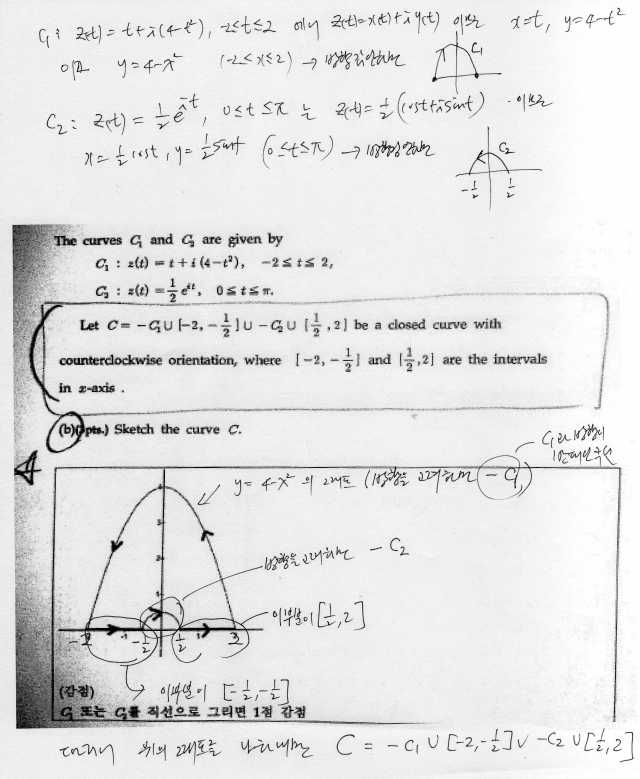 C₁: z(t) = t + i(4-t²), -2≤t≤2 에서 z(t)=x(t)+iy(t) 이므로 x=t, y=4-t²
이고 y=4-x² (-2≤x≤2) → 방향
C₁
C₂: z(t) = ½e^{it}, 0≤t≤π 는 z(t)=½(cost+isint) 이므로
x=½cost, y=½sint (0≤t≤π) →
C₂
-½ ½
The curves C₁ and C₂ are given by
C₁ : z(t) = t + i (4-t²), -2≤t≤2,
C₂ : z(t) = ½ e^{it}, 0≤t≤π.
Let C = -C₁∪[-2, -½]∪ -C₂∪[½, 2] be a closed curve with
counterclockwise orientation, where [-2, -½] and [½, 2] are the intervals
in x-axis .
(b)(3pts.) Sketch the curve C.
C₁과 방향이
y = 4-x² 의 그래프 (방향을 고려하면 -C₁)
방향을 고려하면 -C₂
이부분이 [½, 2]
-½ ½
이부분이 [-½, -½]
(감점)
C₁ 또는 C₂를 직선으로 그리면 1점 감점
따라서 위의 그래프를 나타내면 C = -C₁∪[-2,-½]∪-C₂∪[½,2]